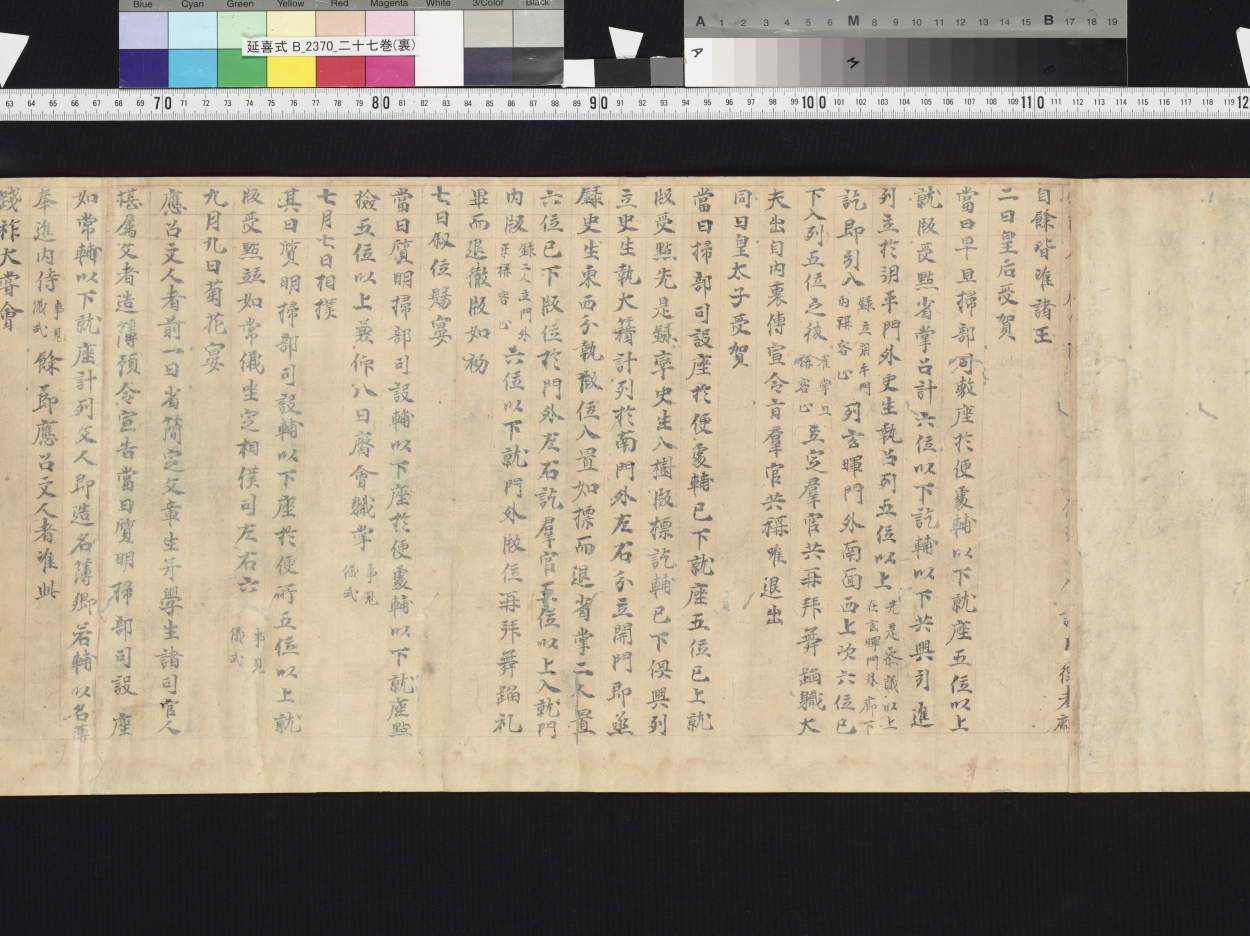 Blue Cyan Green Yellow Red Magenta White 3/Color Black
延喜式 B_2370_二十七巻(裏)
A 1 2 3 4 5 6 M 8 9 10 11 12 13 14 15 B 17 18 19
63 64 65 66 67 68 69 70 71 72 73 74 75 76 77 78 79 80 81 82 83 84 85 86 87 88 89 90 91 92 93 94 95 96 97 98 99 100 101 102 103 104 105 106 107 108 109 110 111 112 113 114 115 116 117 118 119 12
自餘皆准諸王
二日皇后受賀
當日早旦掃部司敷座於便處輔以下就座五位以上
就版受點省掌召計六位以下訖輔以下共興引進
列立於朔平門外史生執召列五位以上 先是參議以上
在玄暉門外廊下
訖即引入 錄立朔平門
内糺容止 列玄暉門外南面西上次六位已
下入列五位之後 省掌且
糺容止 立定羣官共再拜舞蹈職大
夫出自内裏傳宣令旨羣官共稱唯退出
同日皇太子受賀
當日掃部司設座於便處輔已下就座五位已上就
版受點先是錄率史生入樹版標訖輔已下俱興列
立史生執大籍計列於南門外左右分立開門即丞
錄史生東西分執版位入置如標而退省掌二人置
六位已下版位於門外左右訖羣官五位以上入就門
内版 錄二人立門外
糺容止 六位以下就門外版位再拜舞蹈礼
畢而退徹版如初
七日叙位賜宴
當日質明掃部司設輔以下座於便處輔以下就座點
撿五位以上兼仰八日齋會職掌 事見
儀式
七月七日相撲
其日質明掃部司設輔以下座於便所五位以上就
版受點並如常儀坐定相撲司左右六 事見
儀式
九月九日菊花宴
應召文人者前一日省簡定文章生并學生諸司官人
堪属文者造簿預令宣告當日質明掃部司設座
如常輔以下就座計列文人即造名簿卿若輔以名簿
奉進内侍 事見
儀式 餘節應召文人者准此
踐祚大嘗會